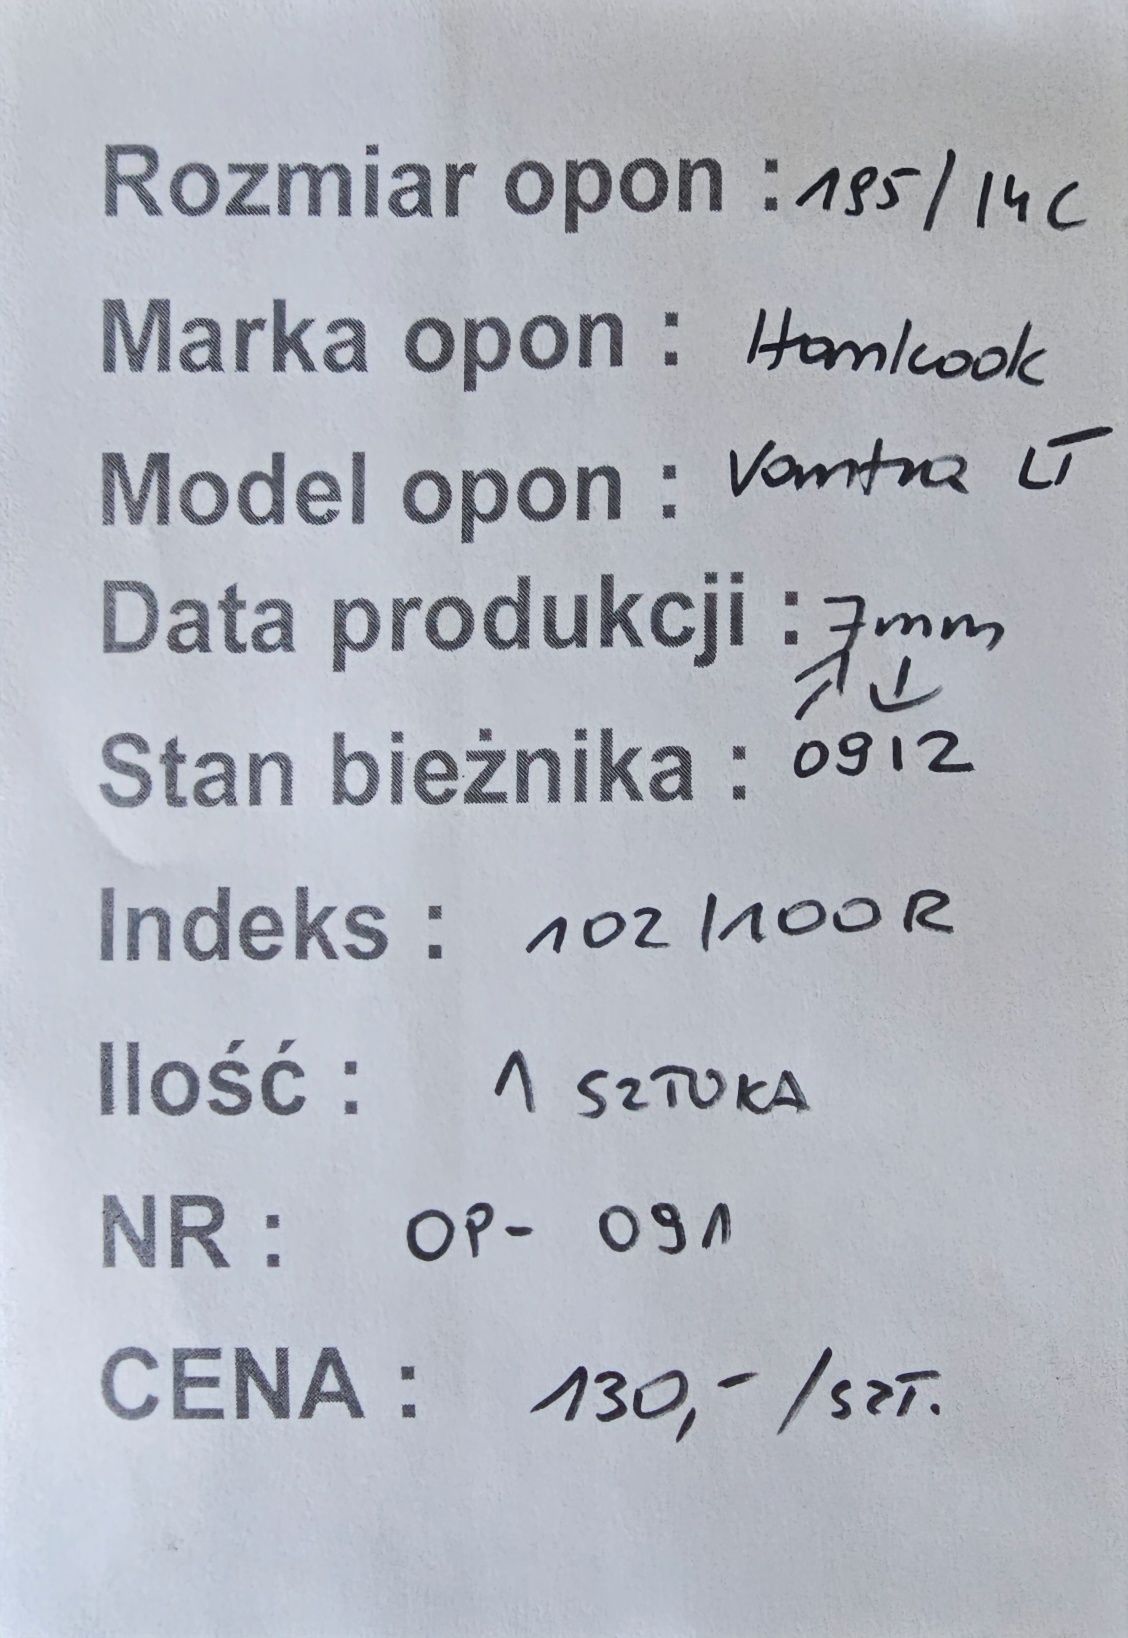 Rozmiar opon : 195/14C
Marka opon : Hankook
Model opon : Vantra LT
Data produkcji : 7mm
Stan bieżnika : 0912
Indeks : 102/100R
Ilość : 1 SZTUKA
NR : OP- 091
CENA : 130,- /SZT.